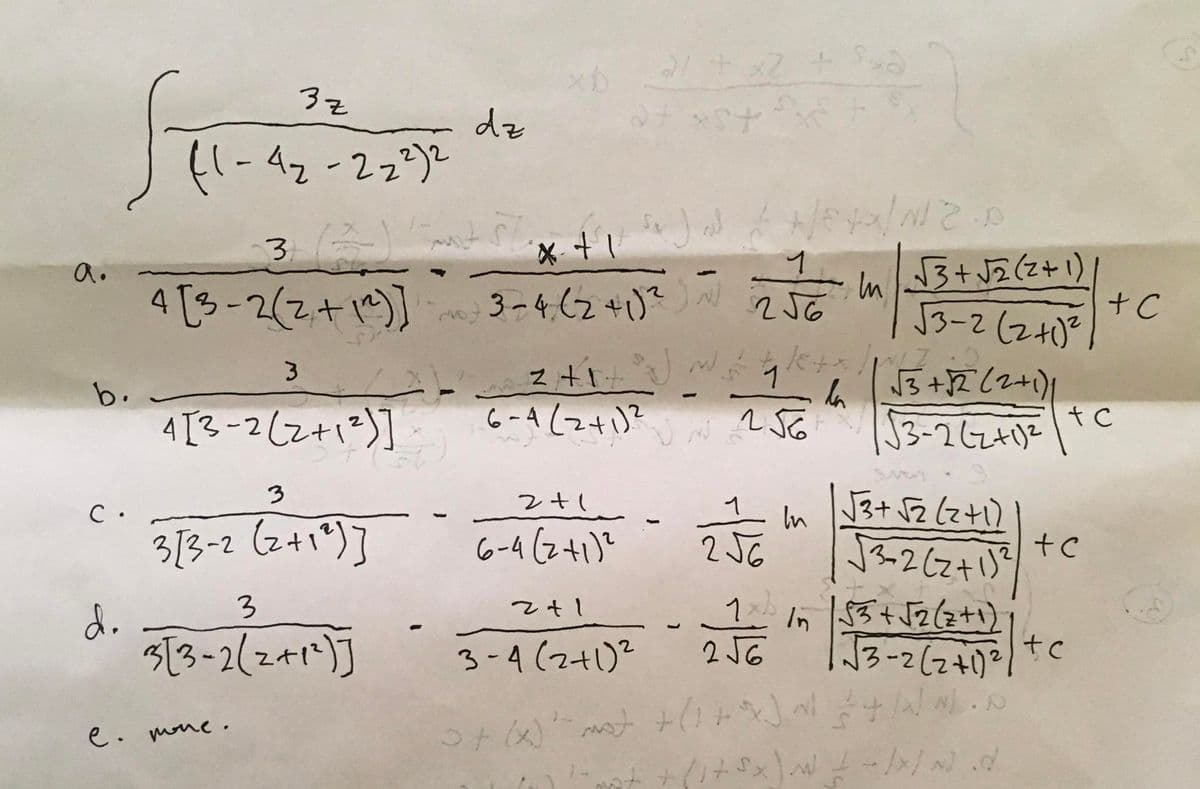 ∫ 3z / (1 - 4z - 2z²)² dz
a. 3 / 4[3-2(z+1²)] - x+1 / 3-4(z+1)² - 1 / 2√6 ln |√3+√2(z+1) / √3-2(z+1)²| + C
b. 3 / 4[3-2(z+1²)] - z+1 / 6-4(z+1)² - 1 / 2√6 ln |√3+√2(z+1) / √3-2(z+1)²| + C
c. 3 / 3[3-2(z+1²)] - z+1 / 6-4(z+1)² - 1 / 2√6 ln |√3+√2(z+1) / √3-2(z+1)²| + C
d. 3 / 3[3-2(z+1²)] - z+1 / 3-4(z+1)² - 1 / 2√6 ln |√3+√2(z+1) / √3-2(z+1)²| + C
e. none.